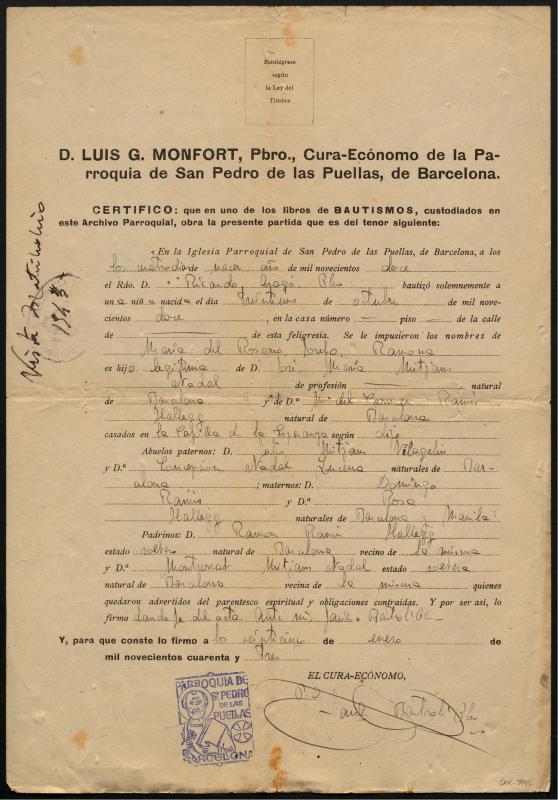 Reintégrese
según
la Ley del
Timbre
D. LUIS G. MONFORT, Pbro., Cura-Ecónomo de la Pa-
rroquia de San Pedro de las Puellas, de Barcelona.
CERTIFICO: que en uno de los libros de BAUTISMOS, custodiados en
este Archivo Parroquial, obra la presente partida que es del tenor siguiente:
«En la Iglesia Parroquial de San Pedro de las Puellas, de Barcelona, a los
de mil novecientos doce
el Rdo. D. Ricardo Aragó Pbro bautizó solemnemente a
una niña nacida el día treintiuno de octubre de mil nove-
cientos doce, en la casa número — piso — de la calle
de — de esta feligresía. Se le impusieron los nombres de
María del Rosario, Loreto, Ramona
es hija legítima de D. José María Mitjans
Nadal de profesión — natural
de Barcelona y de D.ª Mª del Carmen Ramis
Hallegg natural de Barcelona
casados en la Capilla de la Esperanza según dijo
Abuelos paternos: D. Mitjans
y D.ª Concepción Nadal Lucena naturales de Bar-
celona; maternos: D. Domingo
Ramis y D.ª Rosa
Hallegg naturales de Barcelona y Manila:
Padrinos: D. Ramon Ramis Hallegg
estado soltero natural de Barcelona vecino de la misma
y D.ª Montserrat Mitjans Nadal estado soltera
natural de Barcelona vecina de la misma quienes
quedaron advertidos del parentesco espiritual y obligaciones contraídas. Y por ser así, lo
firmo dando fe del acta. Ante mi,
Y, para que conste lo firmo a los veinticinco de enero de
mil novecientos cuarenta y tres
EL CURA-ECÓNOMO,
PARROQUIA DE
Sn PEDRO
DE LAS
PUELLAS
BARCELONA
Visita Matrimonio
1943